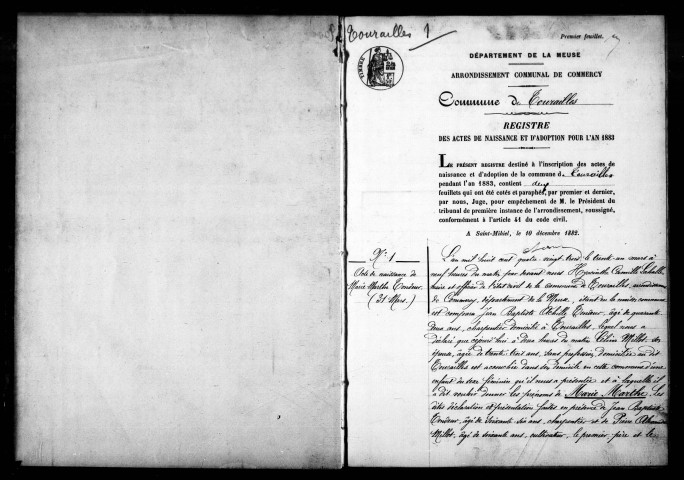 Tourailles 1
Premier feuillet.
TIMBRE
DÉPARTEMENT DE LA MEUSE
ARRONDISSEMENT COMMUNAL DE COMMERCY
Commune de Tourailles
REGISTRE
DES ACTES DE NAISSANCE ET D'ADOPTION POUR L'AN 1883
LE PRÉSENT REGISTRE destiné à l'inscription des actes de
naissance et d'adoption de la commune de Tourailles
pendant l'an 1883, contient deux
feuillets qui ont été cotés et paraphés, par premier et dernier,
par nous, Juge, pour empêchement de M. le Président du
tribunal de première instance de l'arrondissement, soussigné,
conformément à l'article 41 du code civil.
A Saint-Mihiel, le 10 décembre 1882.
N° 1
Acte de naissance de
Marie Marthe
(31 Mars.)
L'an mil huit cent quatre vingt trois le trente un mars à
neuf heures du matin par devant nous Hyacinthe Camille
maire et officier de l'état civil de la commune de Tourailles, arrondissement
de Commercy, département de la Meuse, étant en la maison commune
est comparu Jean Baptiste Achille, âgé de quarante
deux ans, charpentier domicilié à Tourailles, lequel nous a
déclaré que cejourd'hui à deux heures du matin Célina Millot, son
épouse, âgée de trente trois ans, sans profession, domiciliée au dit
Tourailles est accouchée dans son domicile en cette commune d'une
enfant du sexe féminin qu'il nous a présentée et à laquelle il
a dit vouloir donner les prénoms de Marie Marthe. Les
dites déclaration et présentation faites en présence de Jean Baptiste
âgé de soixante six ans, charpentier et de Pierre
Millot, âgé de soixante ans, cultivateur, le premier père et le